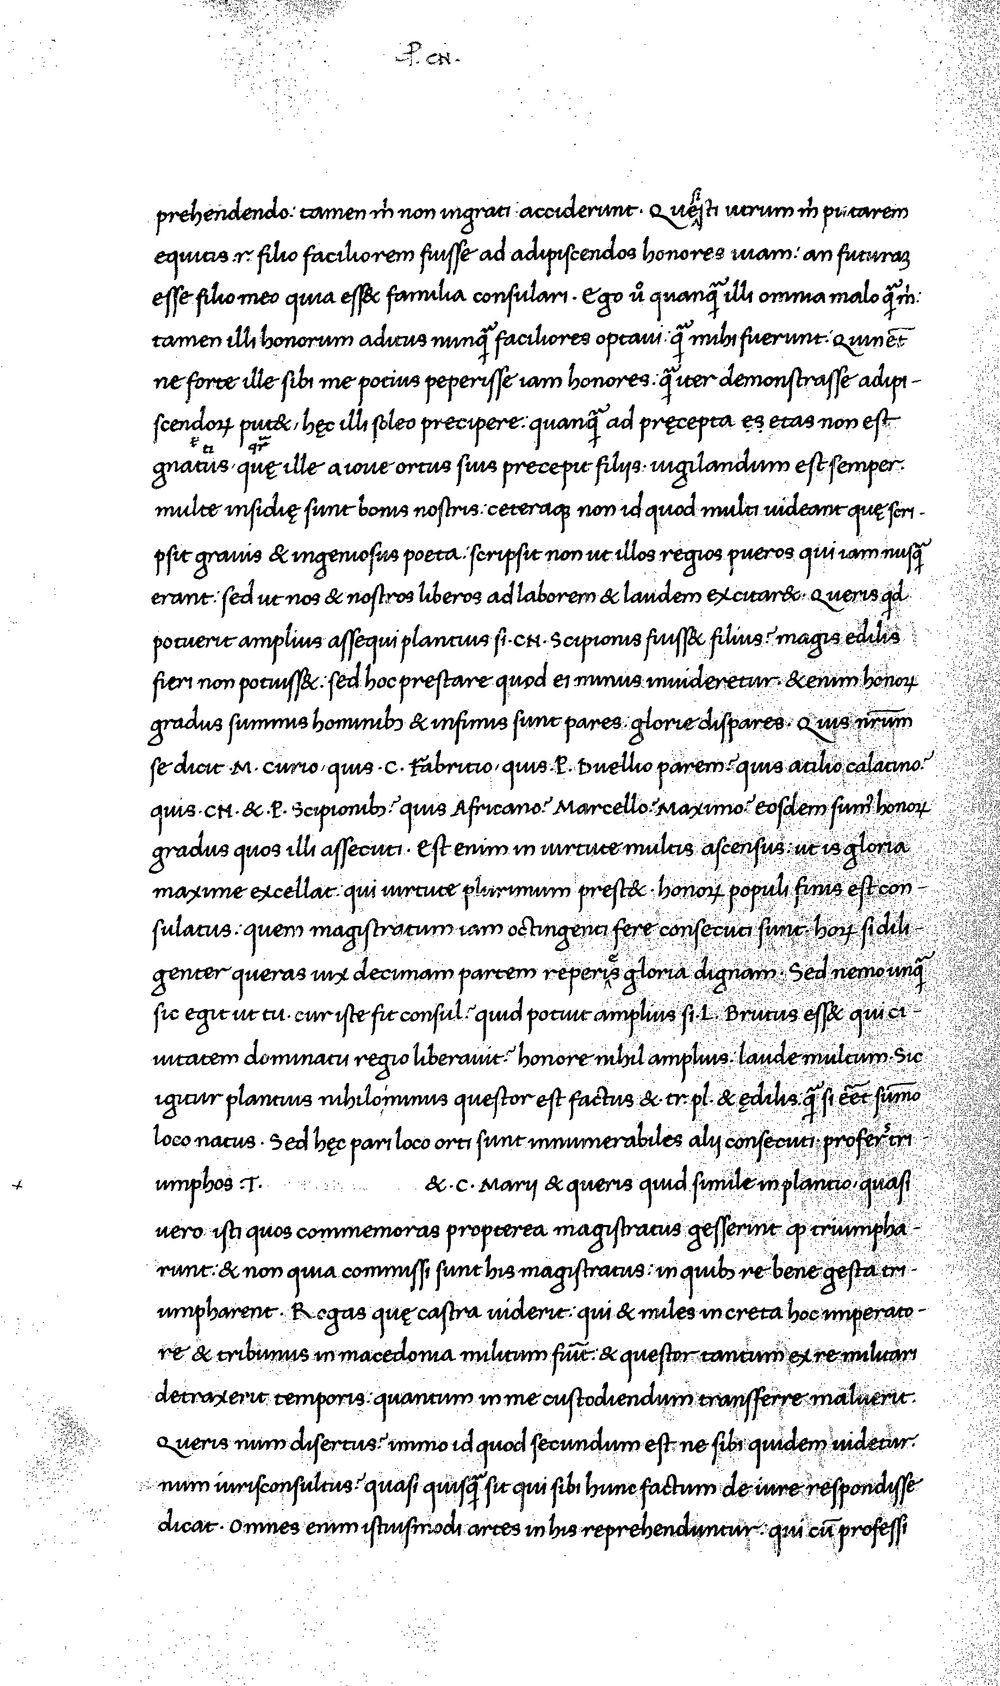 P. CN.
prehendendo: tamen m̃ non ingrati acciderunt. Quęisti utrum m̃ putarem
equitis .r. filio faciliorem fuisse ad adipiscendos honores uiam: an futuraȝ
esse filio meo quia ess& familia consulari. Ego u͛o quanq̃ illi omnia malo q̃ m̃:
tamen illi honorum aditus nunq̃ faciliores optaui: q̃ mihi fuerunt: Quin et̄
ne forte ille sibi me potius peperisse iam honores: q̃ iter demonstrasse adipi-
scendoꝝ put&, hęc illi soleo precipere: quanq̃ ad pręcepta ęs etas non est
gnatus, quę ille a ioue ortus suis precepit filijs. uigilandum est semper.
multe insidię sunt bonis nostris: ceteraqȝ non id quod multi uideant quę scri-
psit grauis & ingeniosus poeta: scripsit non ut illos regios pueros qui iam nusq̃
erant: sed ut nos & nostros liberos ad laborem & laudem excitar&. Queris qd
potuerit amplius assequi plantius si .CN. Scipionis fuiss& filius? magis edilis
fieri non potuiss&: sed hoc prestare quod ei minus inuideretur. &enim honoꝝ
gradus summis hominibȝ & infimis sunt pares: glorie dispares. Quis nr̄um
se dicit .M. Curio, quis .C. Fabritio, quis .P. Duellio parem? quis atilio calatino?
quis .CN. & .P. Scipionibȝ? quis Africano? Marcello? Maximo? eosdem sum' honoꝝ
gradus quos illi assecuti. Est enim in uirtute multis ascensus: ut is gloria
maxime excellat: qui uirtute plurimum prest&. honoꝝ populi finis est con-
sulatus: quem magistratum iam octingenti fere consecuti sunt. hoꝝ si dili-
genter queras uix decimam partem reperis gloria dignam. Sed nemo unq̃
sic egit ut tu. cur iste fit consul? quid potuit amplius si .L. Brutus ess& qui ci-
uitatem dominatu regio liberauit? honore nihil amplius: laude multum. Sic
igitur plantius nihilominus questor est factus & .tr. pl. & ędilis q̃ si ee͞t sum̄o
loco natus. Sed hęc pari loco orti sunt innumerabiles alij consecuti. profer' tri
umphos .T. & .C. Marij & queris quid simile in plantio, quasi
uero isti quos commemoras propterea magistratus gesserint qp triumpha-
runt: & non quia commissi sunt his magistratus: in quibȝ re bene gesta tri-
umpharent. Rogas quę castra uiderit: qui & miles in creta hoc imperato-
re & tribunus in macedonia militum fuit: & questor tantum ex re militari
detraxerit temporis: quantum in me custodiendum transferre maluerit.
Queris num disertus? immo id quod secundum est ne sibi quidem uidetur.
num iurisconsultus? quasi quisq̃ sit qui sibi hunc factum de iure respondisse
dicat. Omnes enim istiusmodi artes in his reprehenduntur: qui cū professi